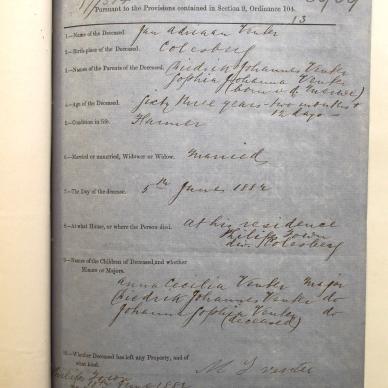 Pursuant to the Provisions contained in Section 9, Ordinance 104.
13
1.—Name of the Deceased. Jan Adriaan Venter
2.—Birth place of the Deceased. Colesberg
3.—Names of the Parents of the Deceased. Diedrik Johannes Venter
Sophia Johanna Venter
(born v. d. Merwe)
4.—Age of the Deceased. Sixty three years - two months &
12 days -
5.—Condition in life. Farmer
6.—Married or unmarried, Widower or Widow. Married
7.—The Day of the decease. 5th June 1884
8.—At what House, or where the Person died. At his residence
Philips Town
div. Colesberg
9.—Names of the Children of Deceased, and whether
Minors or Majors.
Anna Cecilia Venter major
Diedrik Johannes Venter do
Johanna Sophia Venter do
(deceased)
10.—Whether Deceased has left any Property, and of
what kind.
Philips Town
June 1884